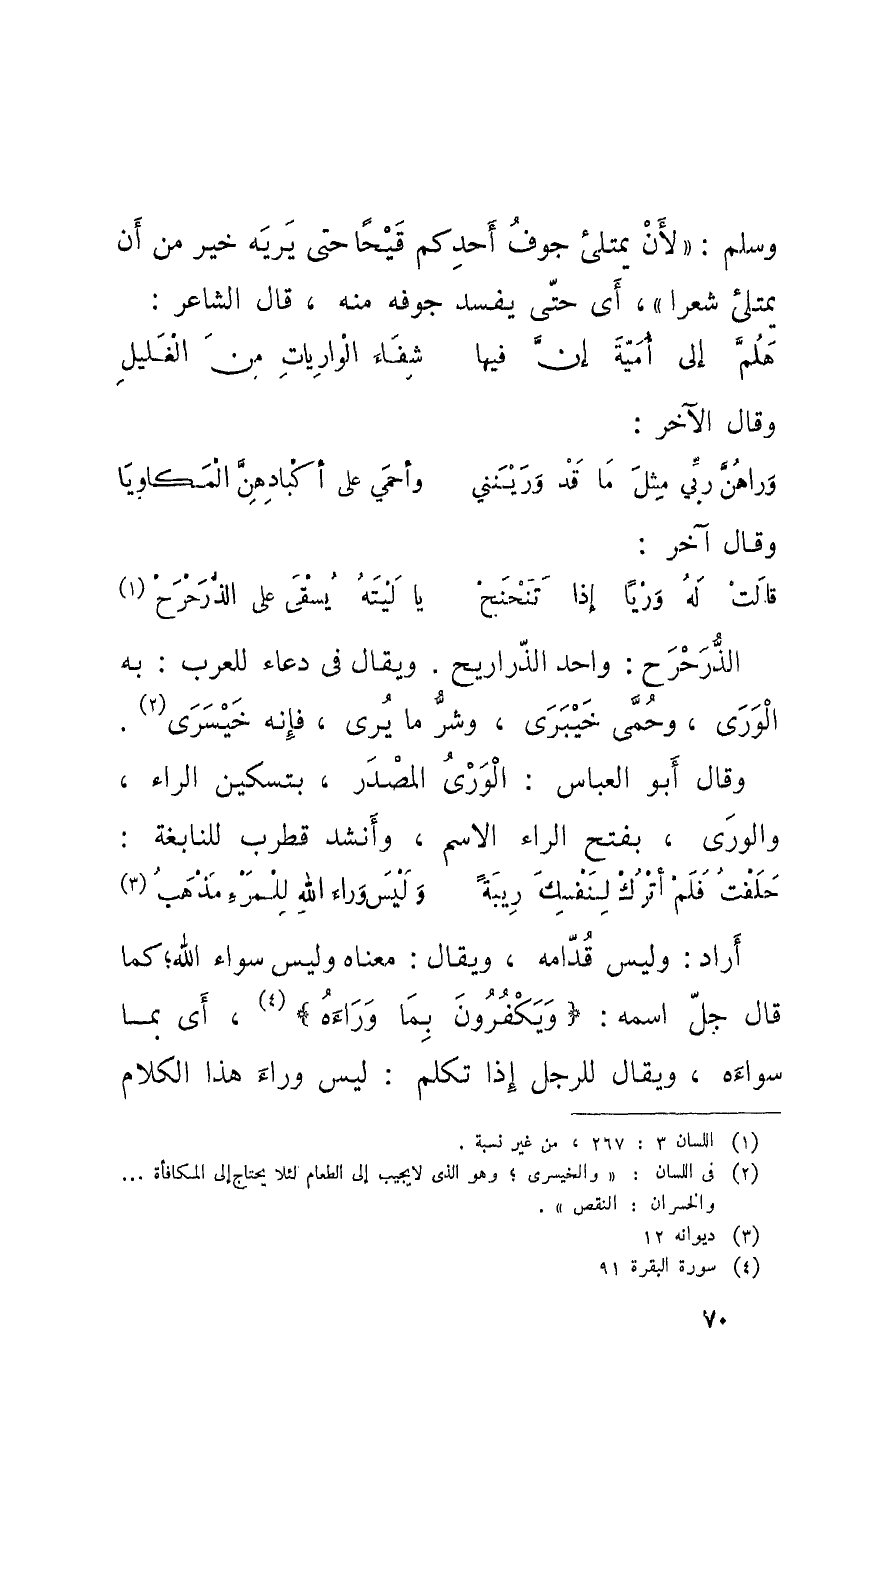 وسلم : «لأَنْ يمتلئ جوفُ أَحدِكم قَيْحًا حتى يَريَه خير من أَن
يمتلئ شعرا» ، أَى حتّى يفسد جوفه منه ، قال الشاعر :
هَلُمَّ إلى أُمَيّةَ إنَّ فيها شِفَاءَ الْوارِياتِ مِنَ الْغَليلِ
وقال الآخر :
وَراهُنَّ ربِّي مِثلَ مَا قَدْ وَرَيْنَني وأحمَي على أكْبادِهِنَّ الْمَكاوِيَا
وقال آخر :
قالَتْ لَهُ وَرْيًا إذا تَنَحْنَحْ يا لَيْتَهُ يُسْقَى على الذُّرَحْرَحْ (١)
الذُّرَحْرَح : واحد الذّراريح . ويقال فى دعاء للعرب : به
الْوَرَى ، وحُمَّى خَيْبَرَى ، وشرُّ ما يُرى ، فإنه خَيْسَرَى (٢) .
وقال أَبو العباس : الْوَرْىُ المصْدَر ، بتسكين الراء ،
والورَى ، بفتح الراء الاسم ، وأَنشد قطرب للنابغة :
حَلَفْتُ فَلَمْ أتْرُكْ لِنَفْسِكَ رِيبَةً وَلَيْسَ وراء اللهِ لِلْمَرْءِ مَذْهَبُ (٣)
أَراد : وليس قُدّامه ، ويقال : معناه وليس سواء الله؛ كما
قال جلّ اسمه : ﴿وَيَكْفُرُونَ بِمَا وَرَاءَهُ﴾ (٤) ، أَى بمـا
سواءَه ، ويقال للرجل إِذا تكلم : ليس وراءَ هذا الكلام
(١) اللسان ٣ : ٢٦٧ ، من غير نسبة .
(٢) فى اللسان : « والخيسرى ؛ وهو الذى لايجيب إلى الطعام لئلا يحتاج إلى المكافأة ...
والخسران : النقص » .
(٣) ديوانه ١٢
(٤) سورة البقرة ٩١
٧٠